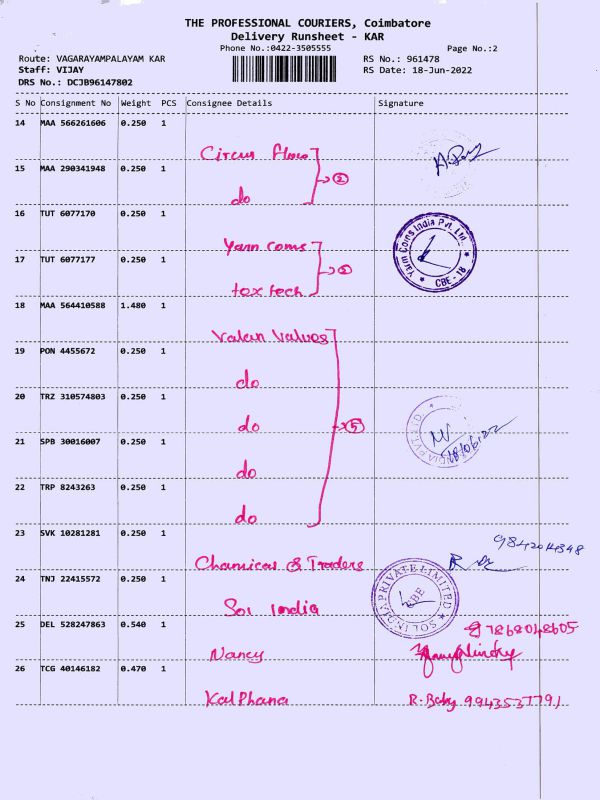 THE PROFESSIONAL COURIERS, Coimbatore
Delivery Runsheet - KAR
Phone No.:0422-3505555 Page No.:2
Route: VAGARAYAMPALAYAM KAR RS No.: 961478
Staff: VIJAY RS Date: 18-Jun-2022
DRS No.: DCJB96147802
S No Consignment No Weight PCS Consignee Details Signature
14 MAA 566261606 0.250 1
Circus flow
15 MAA 290341948 0.250 1
②
do
16 TUT 6077170 0.250 1
Yarn Coins India Pvt. Ltd.
CBE - 18
Yarn Coms
17 TUT 6077177 0.250 1
tex tech
18 MAA 564410588 1.480 1
Valan Valves
19 PON 4455672 0.250 1
do
20 TRZ 310574803 0.250 1
do ⑤
21 SPB 30016007 0.250 1
do
22 TRP 8243263 0.250 1
do
23 SVK 10281281 0.250 1
9842041348
Chamicas & Traders
24 TNJ 22415572 0.250 1
SOL INDIA PRIVATE LIMITED
CBE
Sol India
25 DEL 528247863 0.540 1
7868048605
Nancy
26 TCG 40146182 0.470 1
KalPhana R. Baby 9943537791